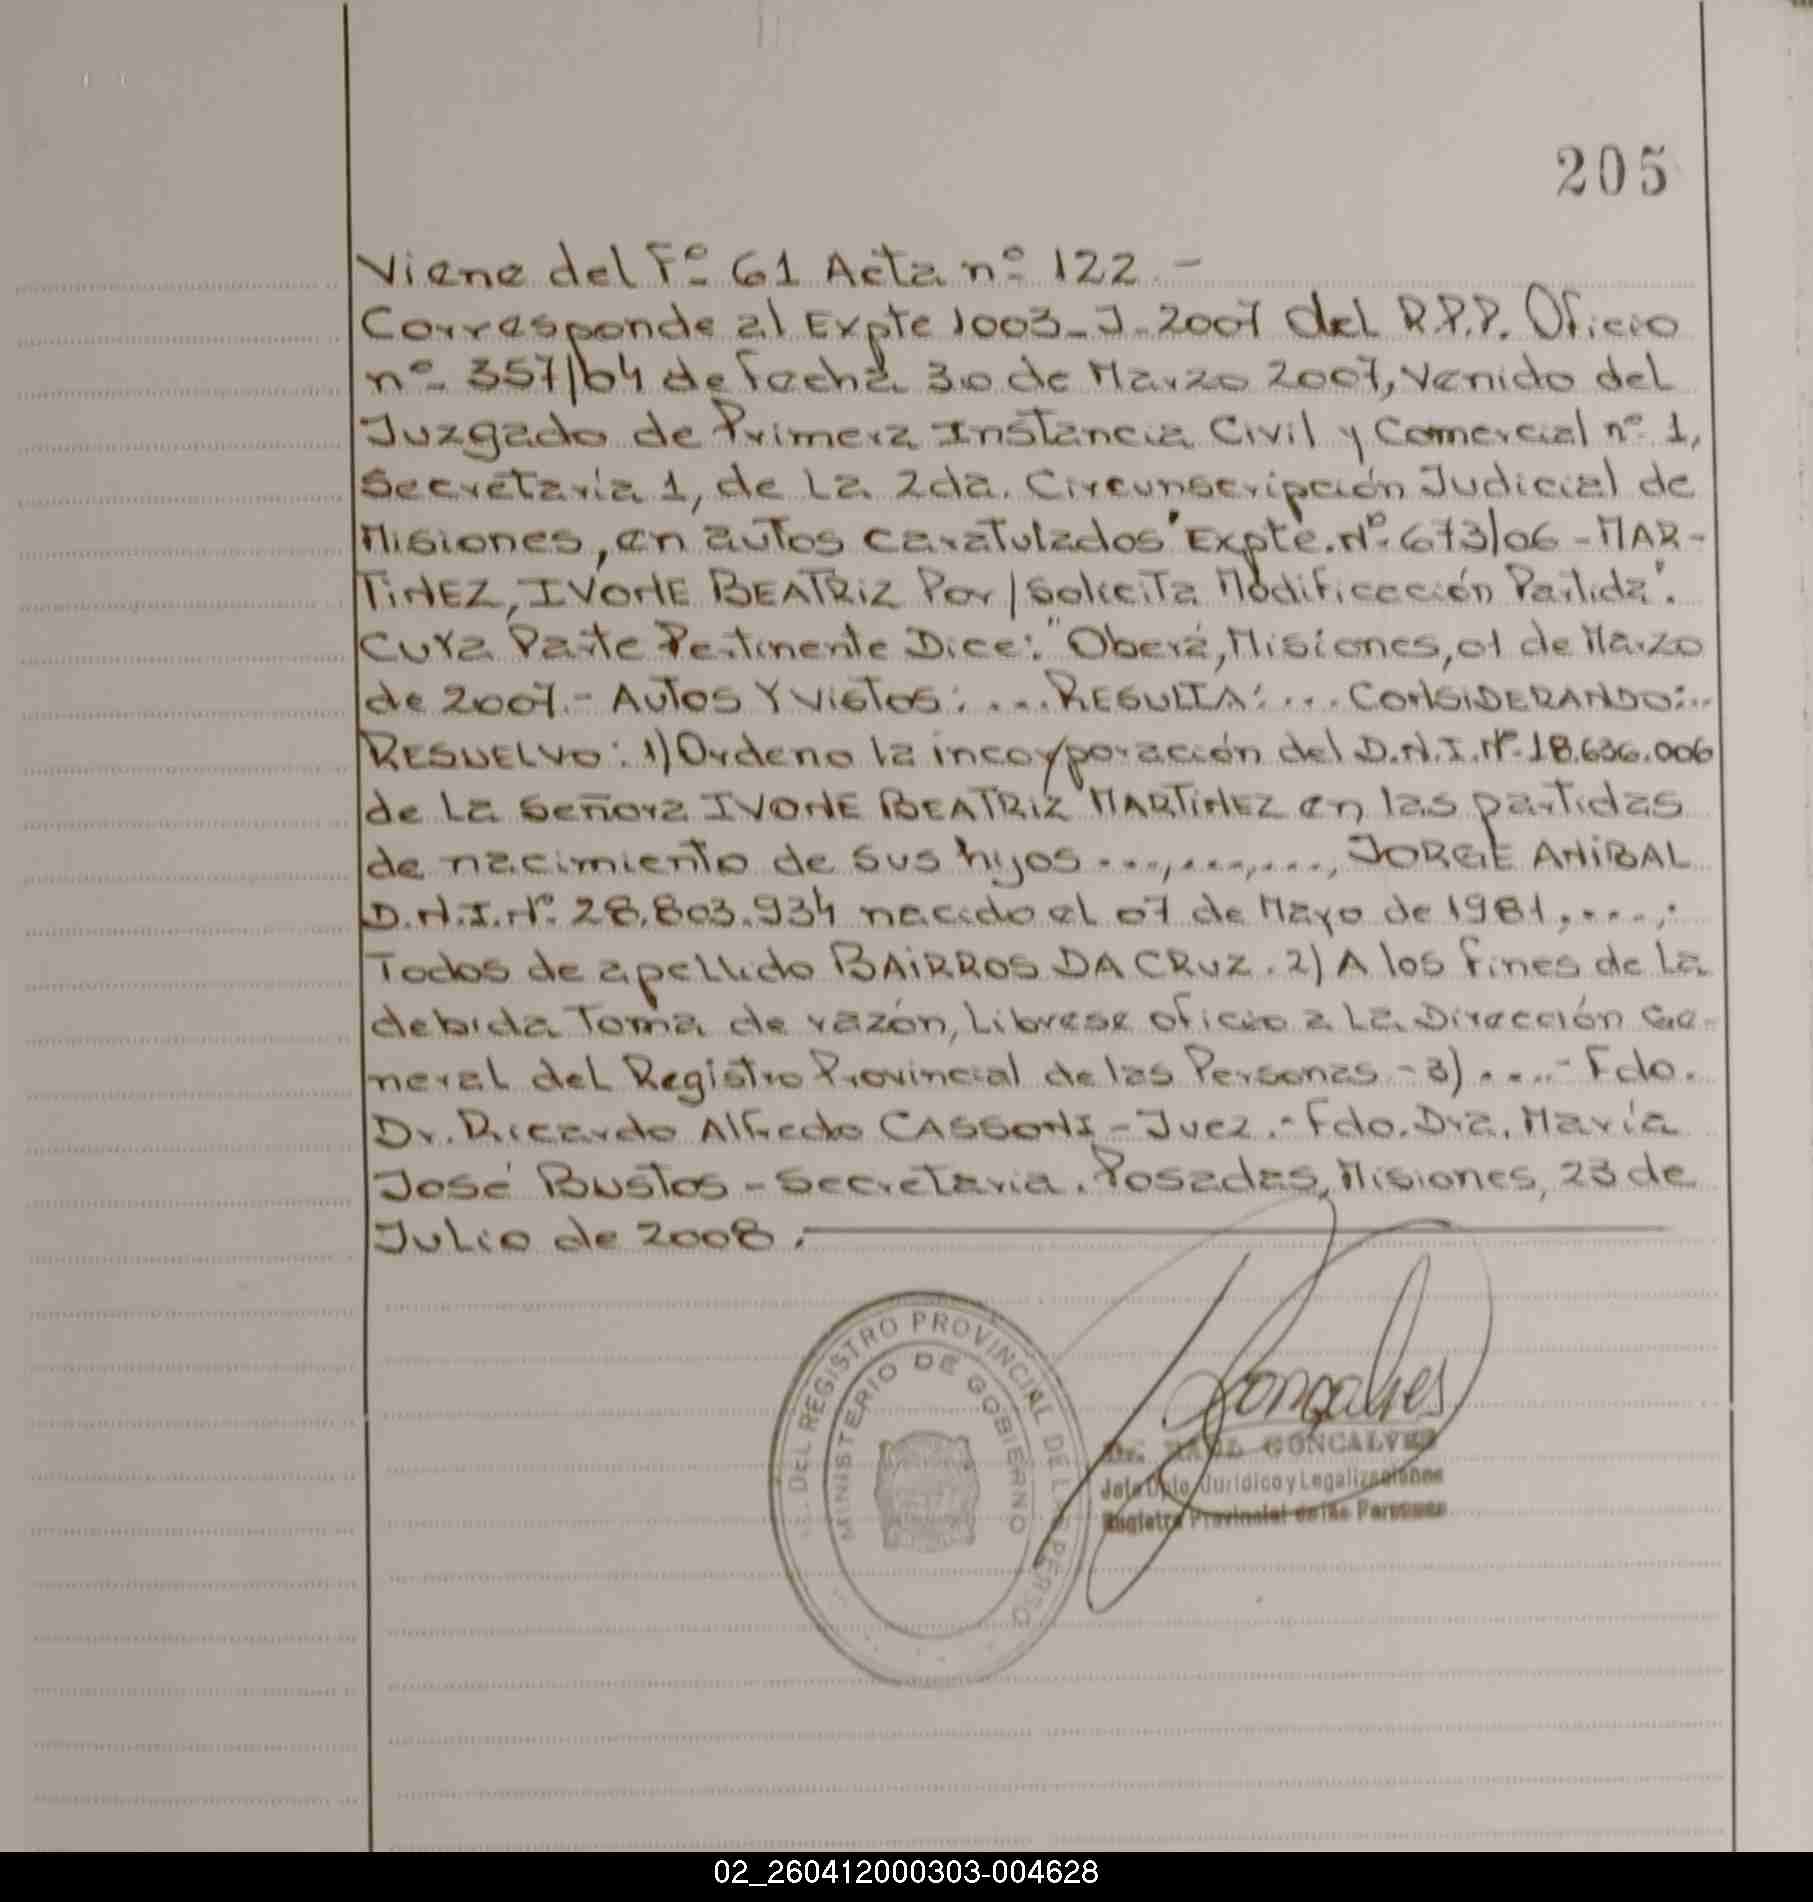 205
Viene del Fº 61 Acta nº 122.-
Corresponde al Expte 1003-J-2007 del R.P.P. Oficio
nº 357/04 de fecha 30 de Marzo 2007, venido del
Juzgado de Primera Instancia Civil y Comercial nº 1,
Secretaría 1, de La 2da. Circunscripción Judicial de
Misiones, en autos caratulados "Expte. Nº 673/06 - MAR-
TINEZ, IVONE BEATRIZ Por/Solicita Modificación Partida".
Cuya Parte Pertinente Dice: "Oberá, Misiones, 01 de Marzo
de 2007.- Autos Y Vistos: ... RESULTA: ... CONSIDERANDO:..
RESUELVO: 1) Ordeno la incorporación del D.N.I. Nº 18.636.006
de La Señora IVONE BEATRIZ MARTINEZ en las partidas
de nacimiento de sus hijos ...,...,..., JORGE ANIBAL
D.N.I. Nº 28.803.934 nacido el 07 de Mayo de 1981, ....;
Todos de apellido BAIRROS DA CRUZ. 2) A los fines de La
debida Toma de razón, Librese oficio a La Dirección Ge-
neral del Registro Provincial de las Personas - 3) ....- Fdo.
Dr. Ricardo Alfredo CASSONI - Juez.- Fdo. Dra. María
José Bustos - Secretaria. Posadas, Misiones, 23 de
Julio de 2008.
DEL REGISTRO PROVINCIAL DE LAS PERSO
MINISTERIO DE GOBIERNO
Goncalves
Dr. RAUL GONCALVES
Jefe Dpto. Jurídico y Legalizaciones
Registro Provincial de las Personas
02_260412000303-004628